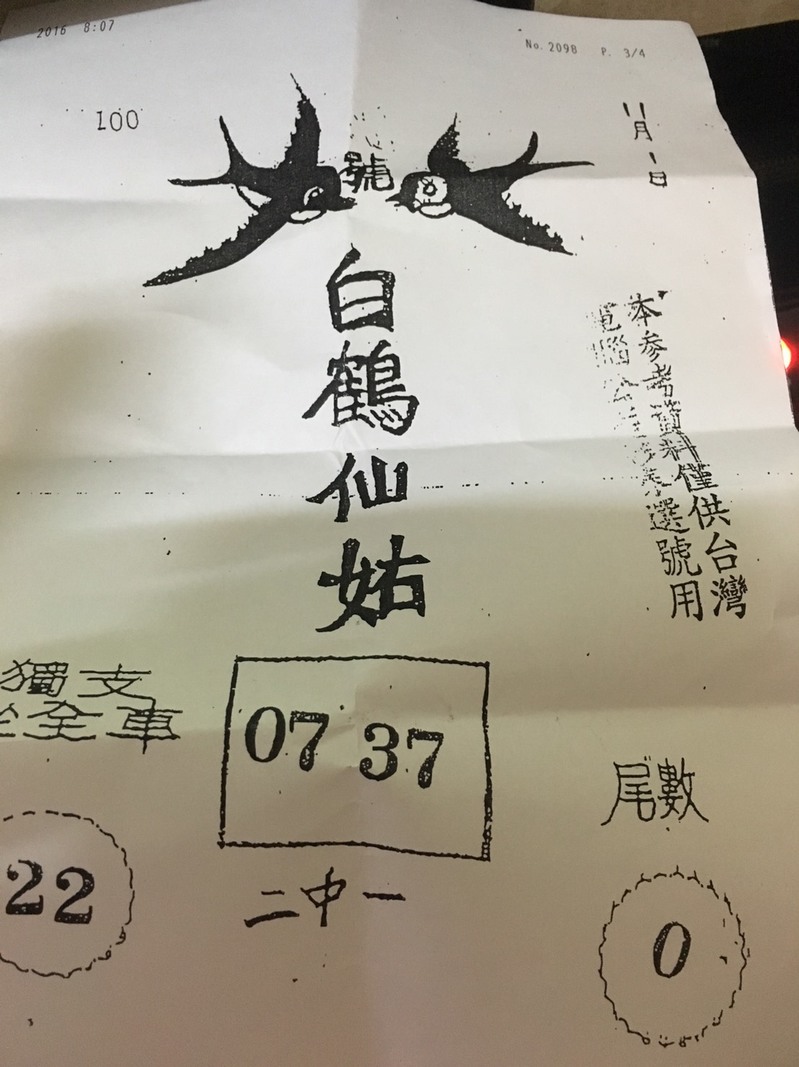 2016 8:07
No. 2098 P. 3/4
100
11月1日
號
白鶴仙姑
本參考資料僅供台灣
電腦 選號用
獨支
全車
07 37
尾數
22
二中一
0